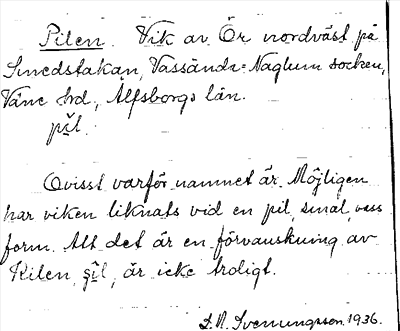 Pilen. Vik av Ör nordväst på
Smedstakan, Vassända-Naglum socken,
Väne hd, Älfsborgs län.
pĭl.
Ovisst varför namnet är. Möjligen
har viken liknats vid en pil, smal, vass
form. Att det är en förvanskning av
Kilen, şĭl, är icke troligt.
D. A. Svenungsson. 1936.